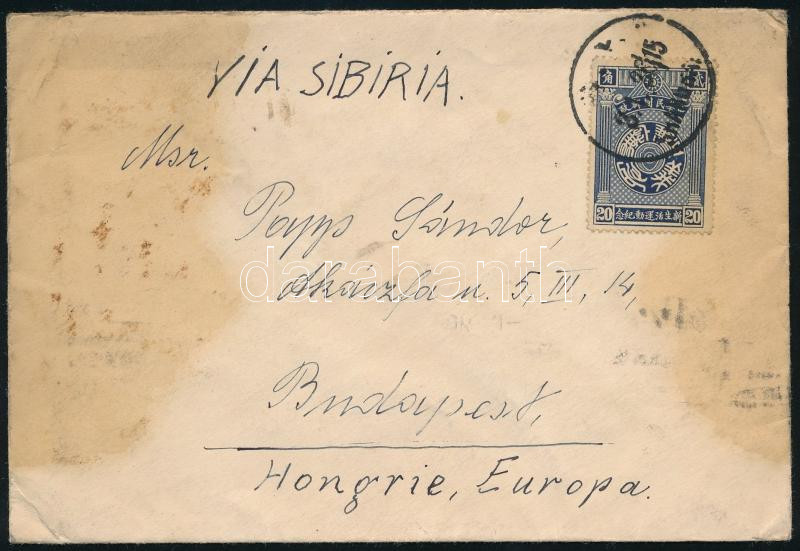 VIA SIBIRIA.
Msr.
Papp Sándor,
Akáczfa u. 5, III, 14,
Budapest,
Hongrie, Europa.
角 貳
20 念紀動運活生新 20
SHANGHAI
darabanth